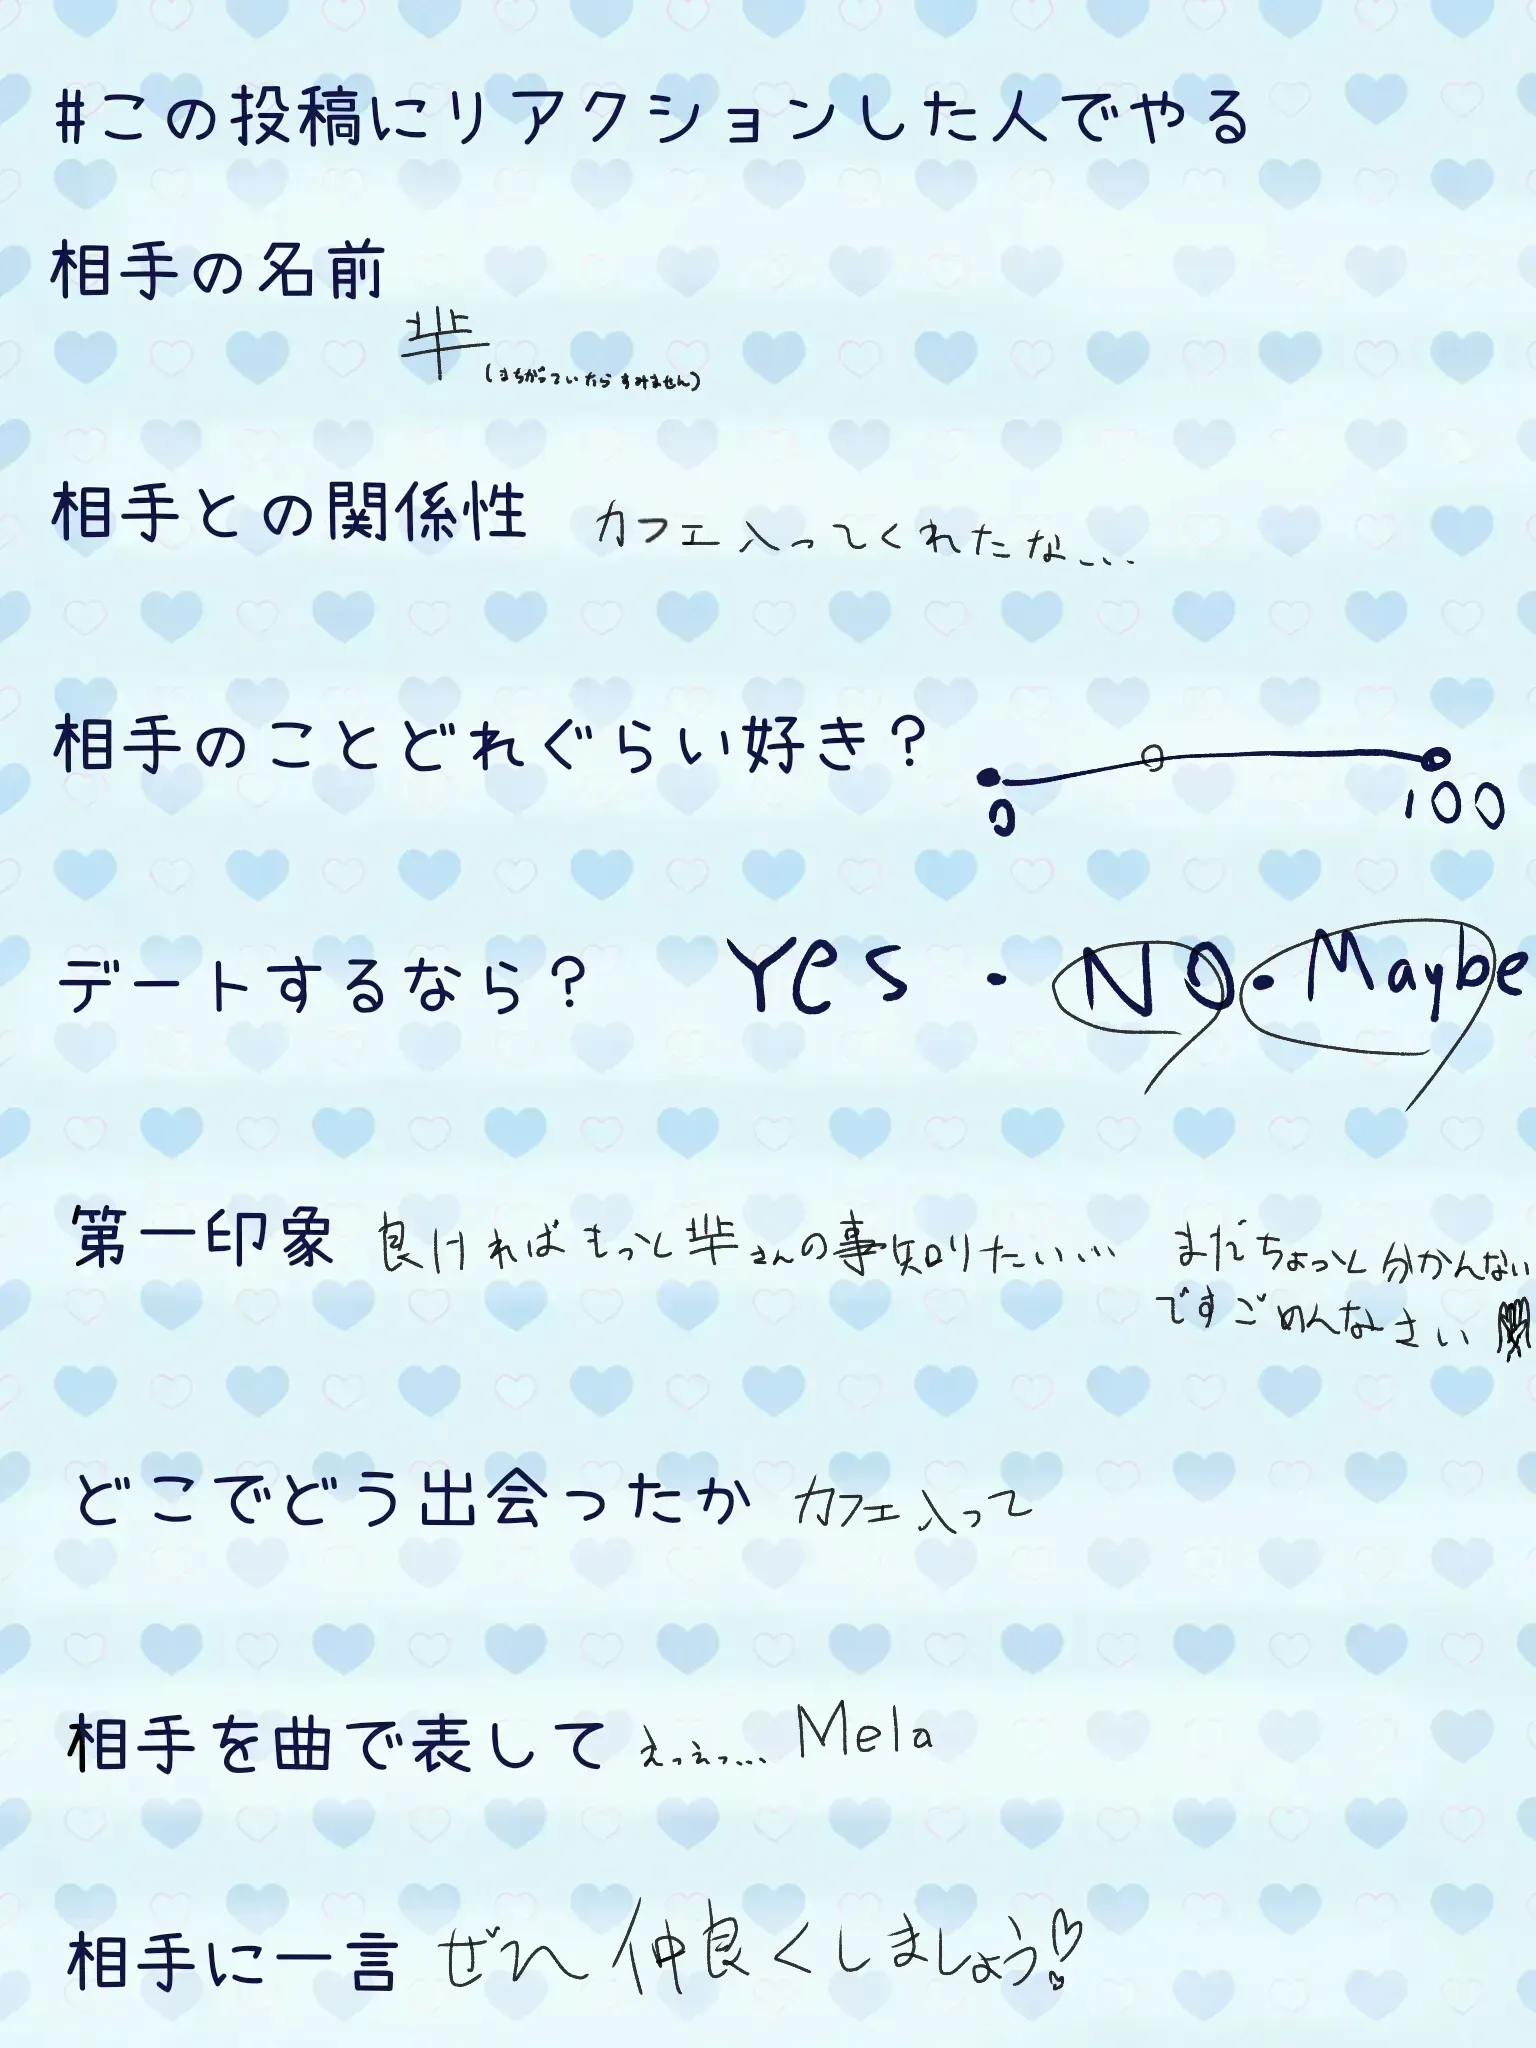 #この投稿にリアクションした人でやる
相手の名前
(まちがっていたらすみません)
相手との関係性 カフェ入ってくれたな...
相手のことどれぐらい好き?
0 100
デートするなら? Yes・NO・Maybe
第一印象 良ければもっと さんの事知りたい... まだちょっと分かんない
ですごめんなさい
どこでどう出会ったか カフェ入って
相手を曲で表して えっえっ... Mela
相手に一言 ぜひ仲良くしましょう♡